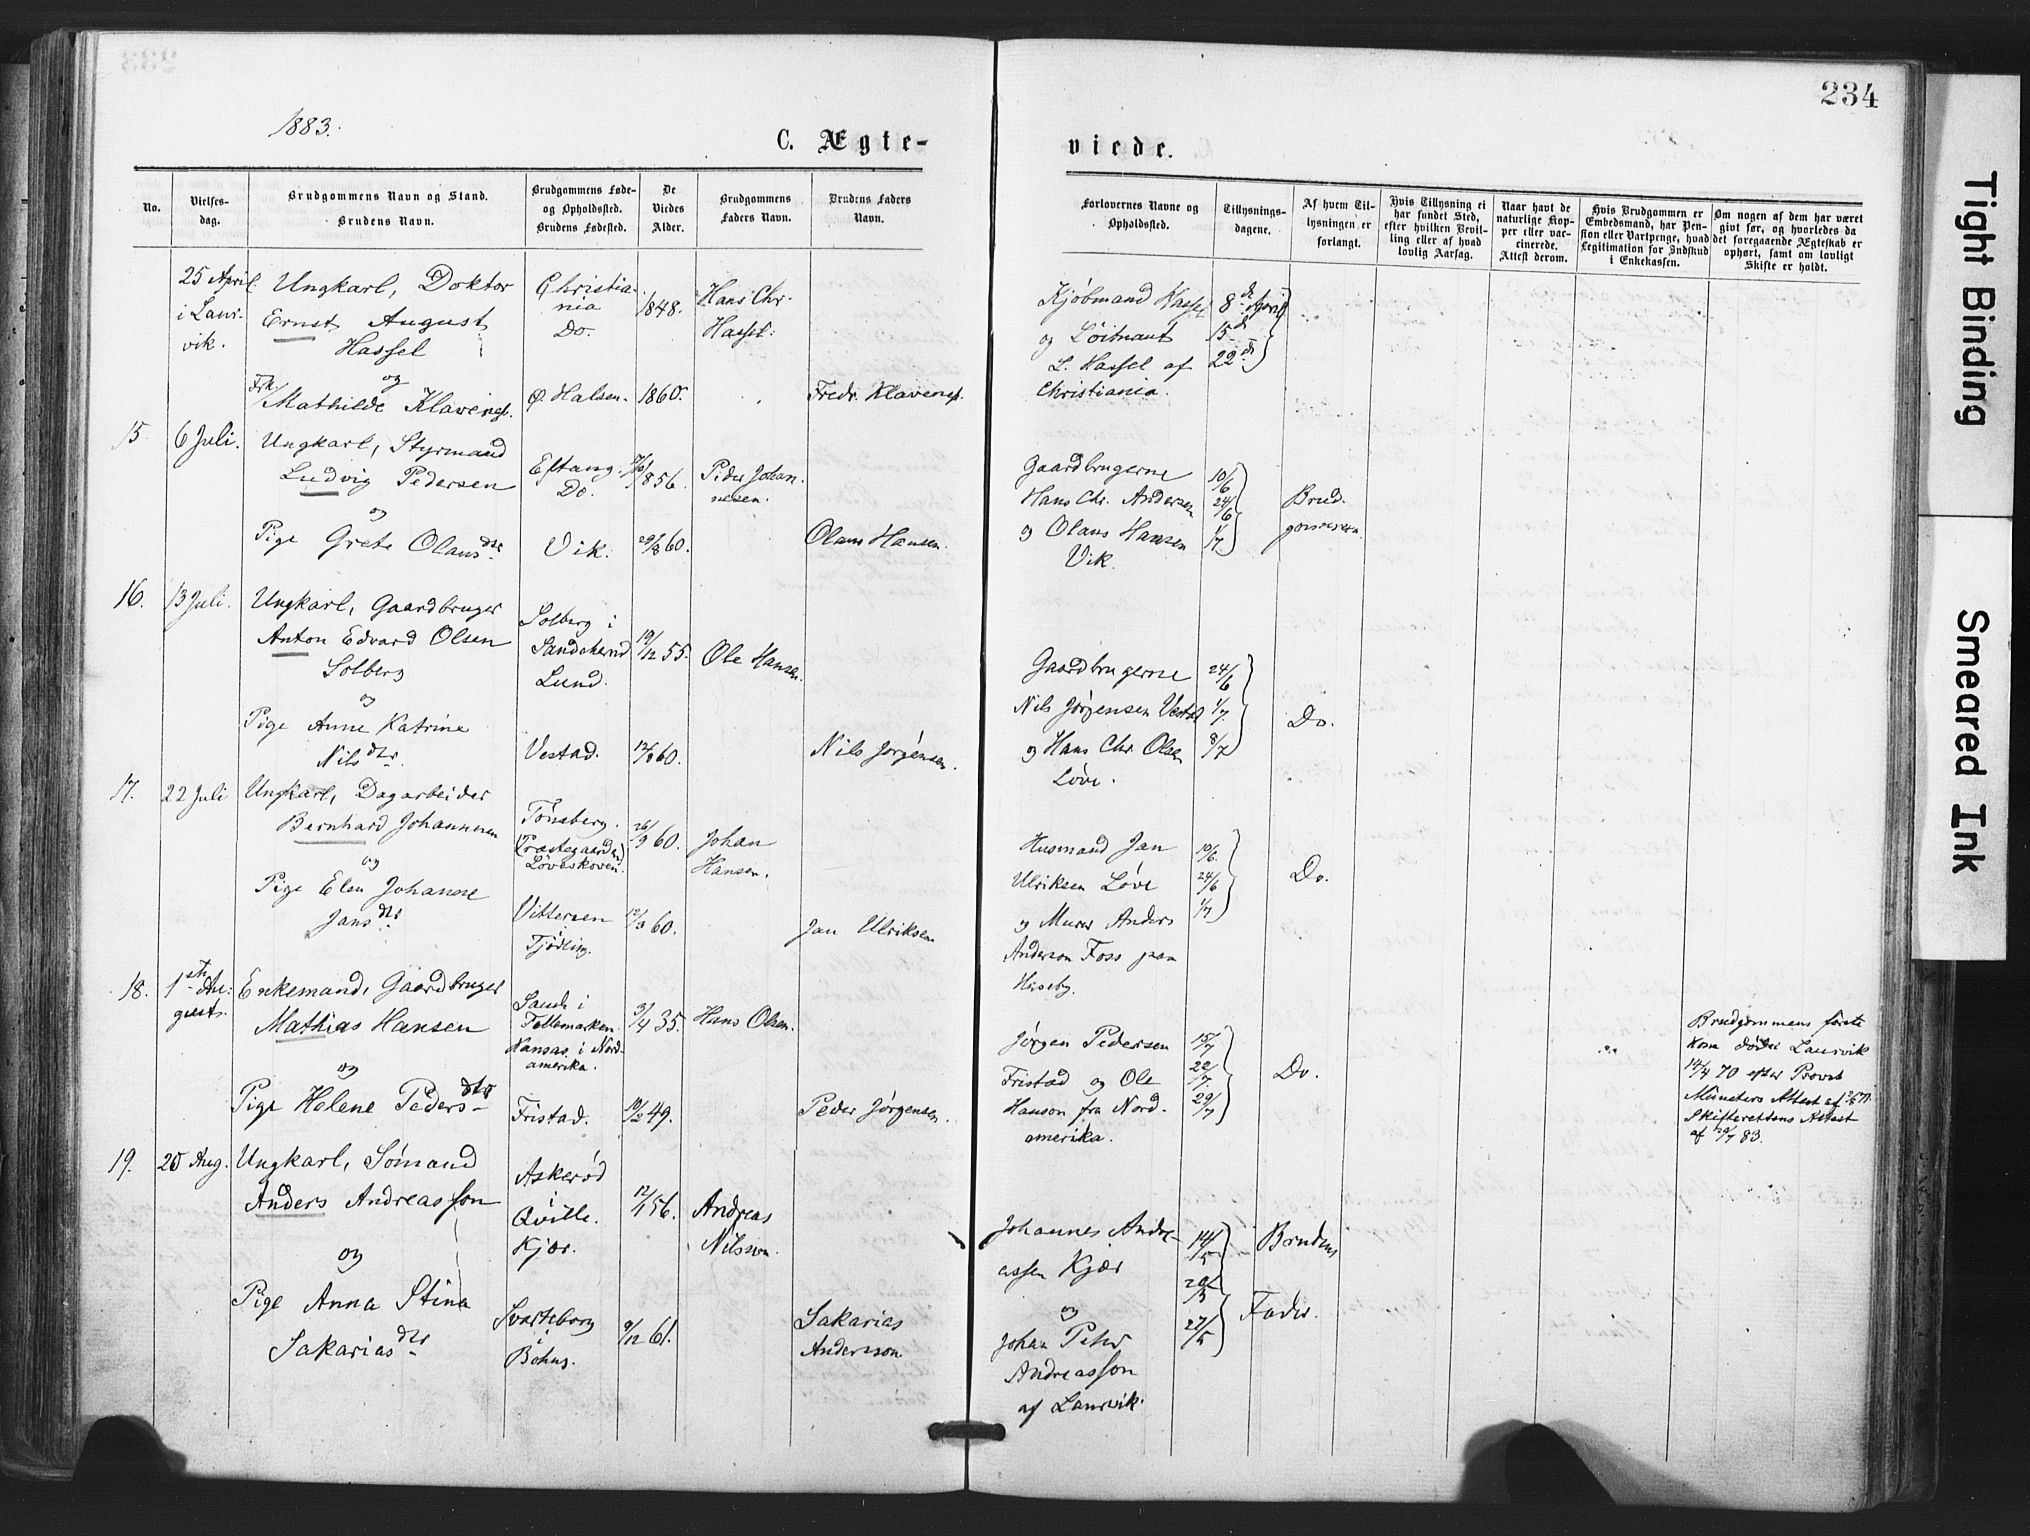 234
1883.
C. Ægte-
viede.
No.
Vielses-
dag.
Brudgommens Navn og Stand.
Brudens Navn.
Brudgommens Føde-
og Opholdssted.
Brudens Fødested.
De
Viedes
Alder.
Brudgommens
Faders Navn.
Brudens Faders
Navn.
Forlovernes Navne og
Opholdssted.
Tillysnings-
dagene.
Af hvem Til-
lysningen er
forlangt.
Hvis Tillysning ei
har fundet Sted,
efter hvilken Bevil-
ling eller af hvad
lovlig Aarsag.
Naar havt de
naturlige Kop-
per eller vac-
cinerede.
Attest derom.
Hvis Brudgommen er
Embedsmand, har Pen-
sion eller Vartpenge, hvad
Legitimation for Indskud
i Enkekassen.
Om nogen af dem har været
givt før, og hvorledes da
det foregaaende Ægteskab er
ophørt, samt om lovligt
Skifte er holdt.
25 April
i Laur-
vik.
Ungkarl, Doktor
Ernst August
Hassel
og
Frk. Mathilde Klaveness.
Christia-
nia
Do.
Ø. Halsen.
1848.
1860.
Hans Chr.
Hassel.
Fredr. Klaveness.
Kjøbmand Hassel
og Løitnant
L. Hassel af
Christiania.
8de April
15de
22de
15.
6 Juli.
Ungkarl, Styrmand
Ludvig Pedersen
og
Pige Grete Olausdtr
Eftang.
Do.
Vik.
1856.
29/8 60.
Peder Johan-
nesen.
Olaus Hansen.
Gaardbrugerne
Hans Chr. Andersen
og Olaus Hansen
Vik.
10/6
24/6
1/7
Brud-
gommen.
16.
13 Juli.
Ungkarl, Gaardbruger
Anton Edvard Olsen
Solberg
og
Pige Anne Katrine
Nilsdtr.
Solberg i
Sandeherred
Lund.
Vestad.
19/12 55.
60.
Ole Hansen.
Nils Jørgensen.
Gaardbrugerne
Nils Jørgensen Vestad
og Hans Chr. Olsen
Løve.
24/6
1/7.
8/7
Do.
17.
22 Juli
Ungkarl, Dagarbeider
Bernhard Johannesen
og
Pige Elen Johanne
Jansdtr.
Tønsberg.
(Præstegaarden)
Løveskoven.
Vittersen
Tjødling.
26/9 60.
60.
Johan
Hansen.
Jan Ulriksen
Husmand Jan
Ulriksen Løve
og Murer Anders
Anderson Foss paa
Huseby.
24/6
1/7
Do.
18.
1ste Au-
gust.
Enkemand, Gaardbruger
Mathias Hansen
og
Pige Helene Pedersdtr
Sande i
Tellemarken.
Kansas i Nord-
amerika.
Fristad.
3/4 35.
19/2 49.
Hans Olsen.
Peder Jørgensen.
Jørgen Pedersen
Fristad og Ole
Hanson fra Nord-
amerika.
15/7
22/7.
29/7
Do.
Brudgommens første
Kone døde i Laurvik
14/4 70 efter Provst
Münsters Attest af
Skifterettens Attest
af 83.
19.
25 Aug.
Ungkarl, Sømand
Anders Andreasson
og
Pige Anna Stina
Sakariasdtr
Askerød
i
Qville.
Kjær.
Svarteborg
i
Bohus.
12/1 56.
9/12 61.
Andreas
Nilsson.
Sakarias
Andersson
Johannes Andre-
assen Kjær
og
Johan Peter
Andreasson
af Laurvik.
14/5
20/5
27/5
Brudens
Fader.
Tight Binding
Smeared Ink